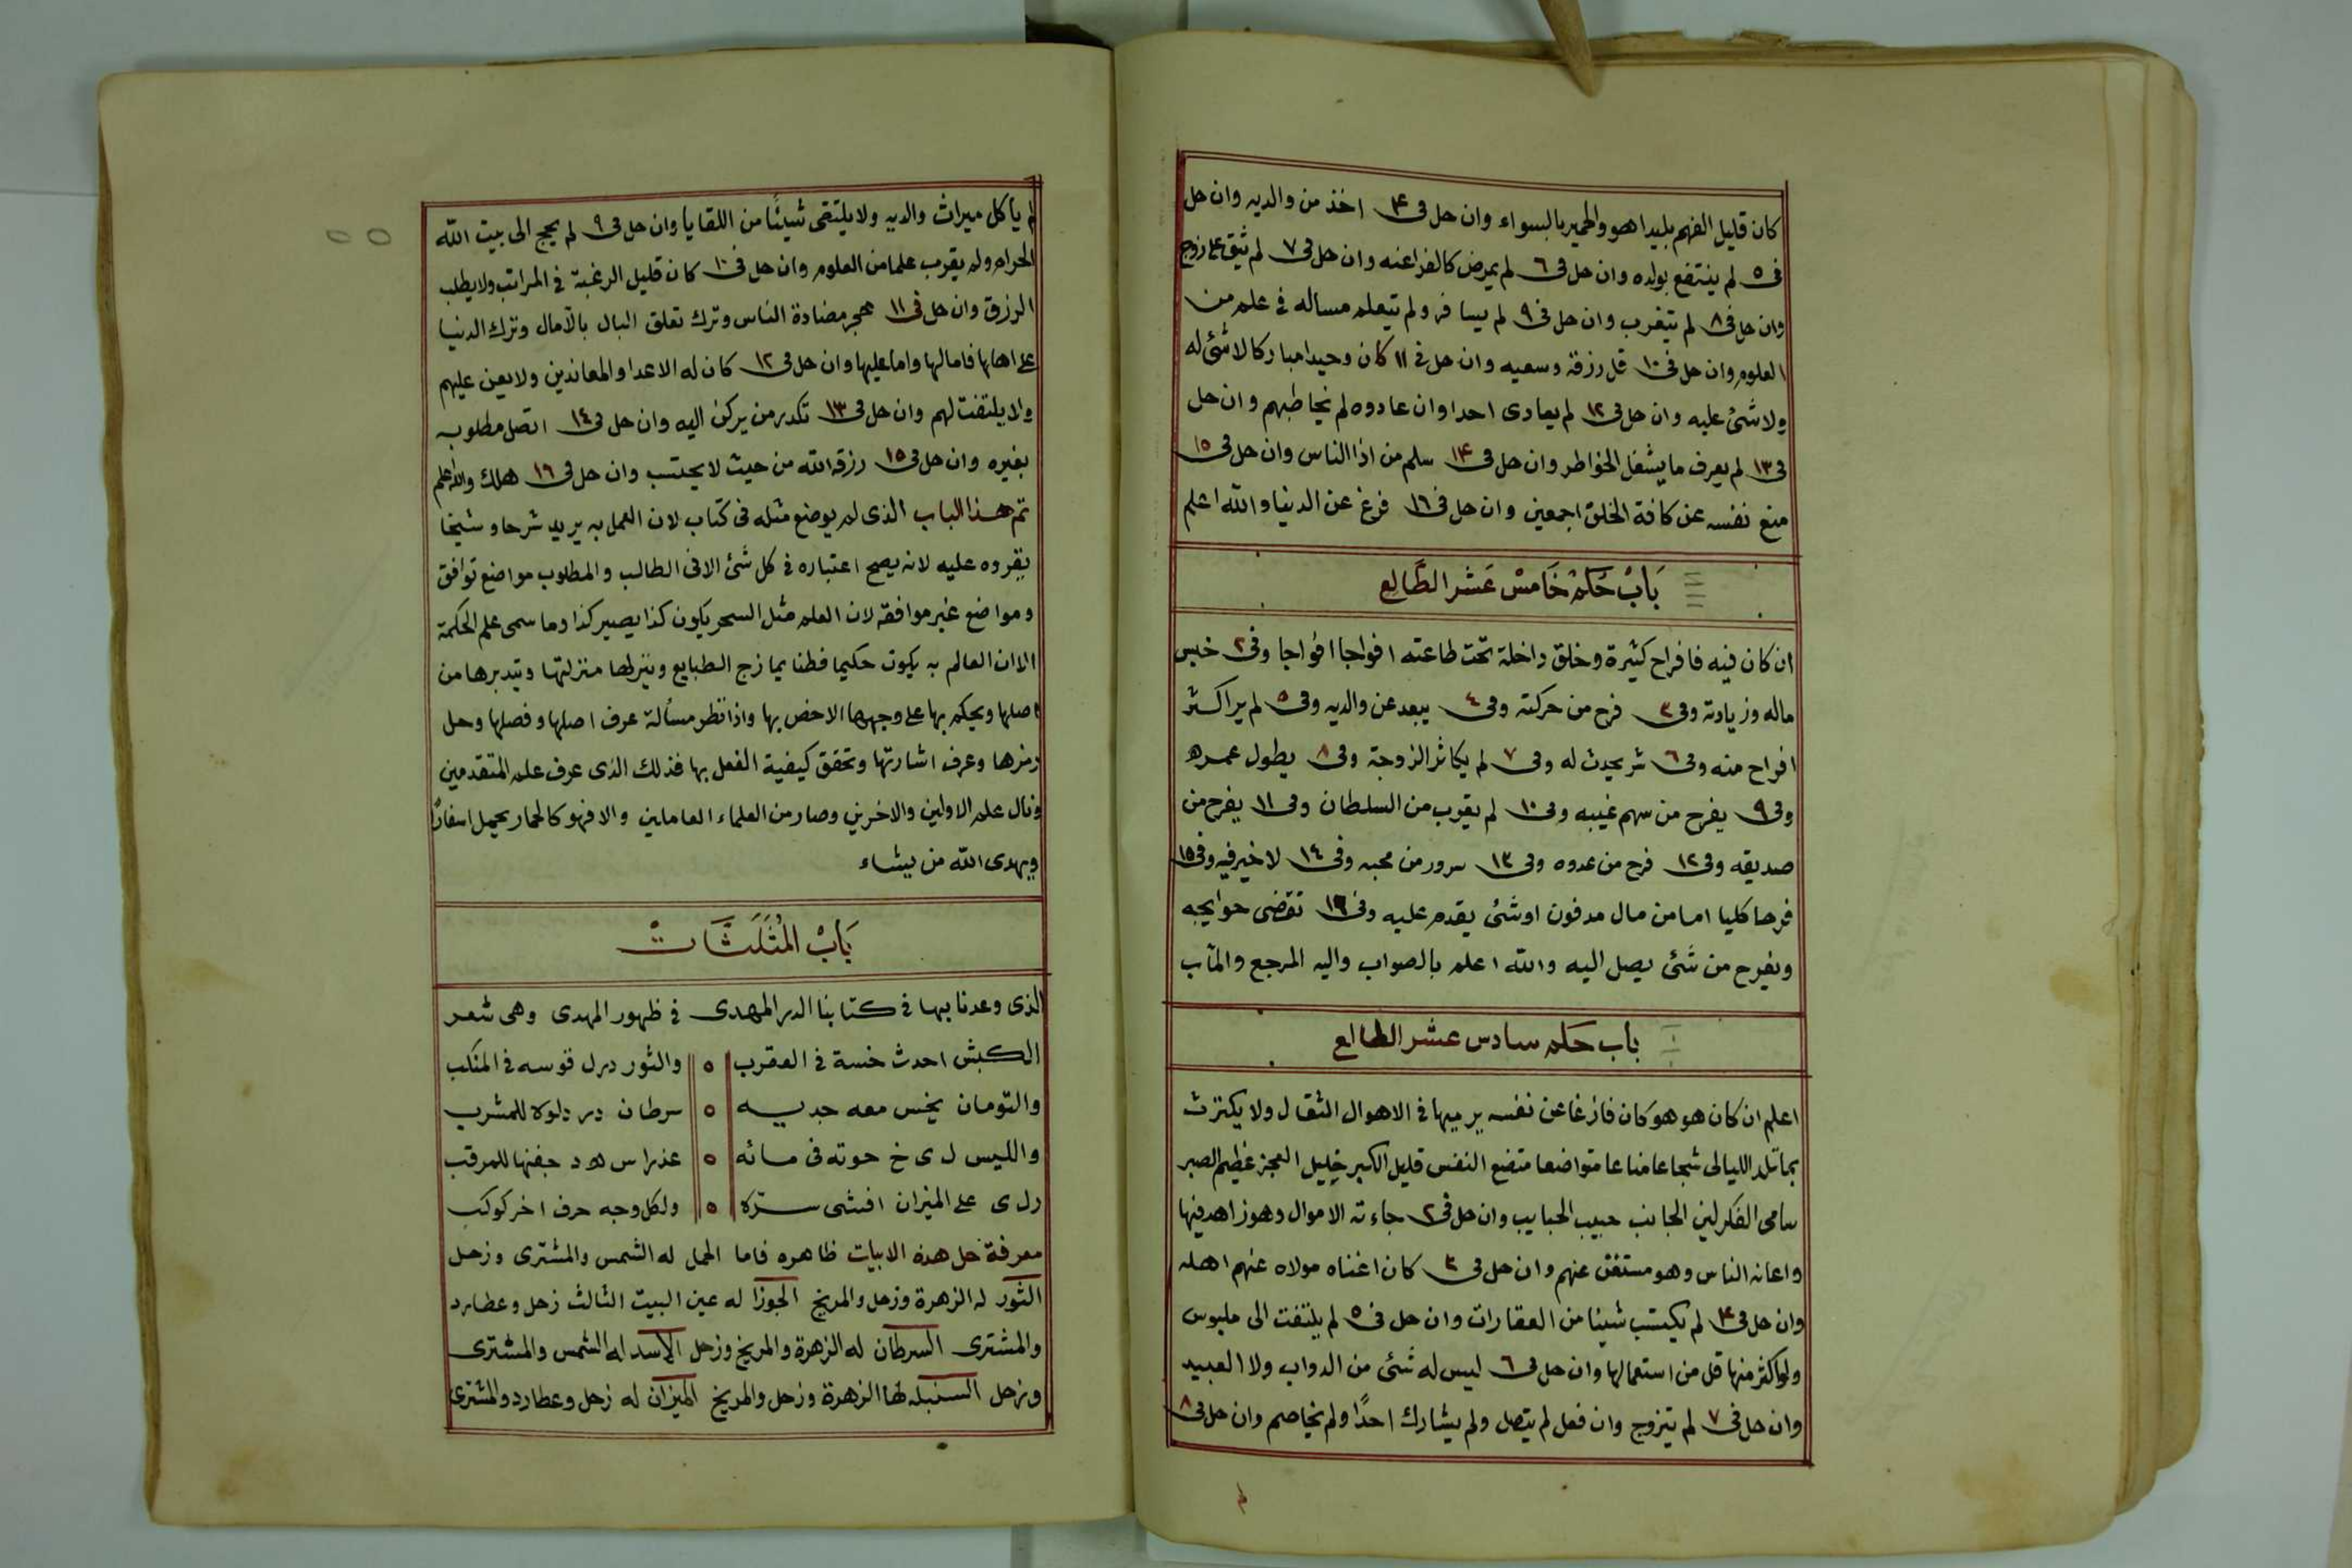 كان قليل الفهم بليدا هو والحمير بالسواء وان حل فى ۴ اخذ من والديه وان حل
فى ٥ لم ينتفع بولده وان حل فى ٦ لم يمرض كالفراعنه وان حل فى ٧ لم يثق على زوج
وان حل فى ٨ لم يتغرب وان حل فى ٩ لم يسافر ولم يتعلم مساله فى علم من
العلوم وان حل فى ١٠ قل رزقه وسعيه وان حل فى ١١ كان وحيدا مباركا لا شئ له
ولا شئ عليه وان حل فى ١٢ لم يعادى احدا وان عادوه لم يخاطبهم وان حل
فى ١٣ لم يعرف ما يشغل الخواطر وان حل فى ١۴ سلم من اذا الناس وان حل فى ١٥
منع نفسه عن كافة الخلق اجمعين وان حل فى ١٦ فرغ عن الدنيا والله اعلم
بَابْ حُكمْ خَامسْ عَشر الطَّالع
ان كان فيه فافراح كثيرة وخلق داخلة تحت طاعته افواجا افواجا وفى ٢ خلس
ماله وزيادته وفى ٣ فرح من حركته وفى ٤ يبعد عن والديه وفى ٥ لم ير اكثر
افراح منه وفى ٦ شر يحدث له وفى ٧ لم يكاثر الزوجة وفى ٨ يطول عمره
وفى ٩ يفرح من سهم غيبه وفى ١٠ لم يقرب من السلطان وفى ١١ يفرح من
صديقه وفى ١٢ فرح من عدوه وفى ١٣ سرور من محبه وفى ١٤ لا خير فيه وفى ١٥
فرحا كليا اما من مال مدفون اوشئ يقدم عليه وفى ١٦ تقضى حوايجه
ويفرح من شئ يصل اليه والله اعلم بالصواب واليه المرجع والمآب
باب حكم سادس عشر الطالع
اعلم ان كان هو هو كان فازغا عن نفسه يرميها فى الاهوال الثقال ولا يكترث
بما تلد الليالى شجاعا مناعا متواضعا متضع النفس قليل الكبر خليل العجز عظيم الصبر
سامى الفكر لين الجانب حبيب الحبايب وان حل فى ٢ جاءته الاموال وهو زاهد فيها
واعانه الناس وهو مستغن عنهم وان حل فى ٣ كان اغناه مولاه عنهم اهله
وان حل فى ۴ لم يكتسب شيئا من العقارات وان حل فى ٥ لم يلتفت الى ملبوس
ولو اكثر منها قل من استعمالها وان حل فى ٦ ليس له شئ من الدواب ولا العبيد
وان حل فى ٧ لم يتزوج وان فعل لم يتصل ولم يشارك احدًا ولم يخاصم وان حل فى ٨
لم
لم ياكل ميراث والديه ولا يلتقى شيئًا من اللقايا وان حل فى ٩ لم يحج الى بيت الله
الحرام ولم يقرب علما من العلوم وان حل فى ١٠ كان قليل الرغبة فى المراتب ولا يطلب
الرزق وان حل فى ١١ هجر مضادة الناس وترك تعلق البال بالآمال وترك الدنيا
على اهلها فاما لها واما عليها وان حل فى ١٢ كان له الاعدا والمعاندين ولا يعن عليهم
ولا يلتفت لهم وان حل فى ١٣ تكدر من يركن اليه وان حل فى ١٤ اتصل مطلوبه
بغيره وان حل فى ١٥ رزقه الله من حيث لا يحتسب وان حل فى ١٦ هلك والله اعلم
تم هذا الباب الذى لم يوضع مثله فى كتاب لان العمل به يريد شرحا وشيخا
يقروه عليه لانه يصح اعتباره فى كل شئ الا فى الطالب والمطلوب مواضع توافق
ومواضع غير موافقه لان العلم مثل السحر يكون كذا يصير كذا وما سمى علم الحكمة
الا ان العالم به يكون حكيما فطنا يمازج الطبايع وينزلها منزلتها ويتدبرها من
اصلها ويحكم بها على وجهها الاخص بها واذا نظر مسألة عرف اصلها وفصلها وحل
رمزها وعرف اشارتها وتحقق كيفية الفعل بها فذلك الذى عرف علم المتقدمين
ونال علم الاولين والاخرين وصار من العلماء العاملين والا فهو كالحمار يحمل اسفارًا
ويهدى الله من يشاء
بَابْ المُثَلَثَّاتْ
الذى وعدنا بها فى كتابنا الدر المهدى فى ظهور المهدى وهى شعر
الكبش احدث خنسة فى العقرب ٥ والثور درل قوسه فى المنكب
والتومان يخنس معه جديه ٥ سرطان در دلوه للمشرب
والليس ل ى خ حوته فى مائه ٥ عذرا س ه د جفنها للمرقب
رل ى على الميزان افشى ستره ٥ ولكل وجه حرف اخر كوكب
معرفة حل هذه الابيات ظاهره فاما الحمل له الشمس والمشترى وزحل
الثور له الزهرة وزحل والمريخ الجوزا له عين البيت الثالث زحل وعطارد
والمشترى السرطان له الزهرة والمريخ وزحل الاسد له الشمس والمشترى
وزحل السنبله لها الزهرة وزحل والمريخ الميزان له زحل وعطارد والمشترى